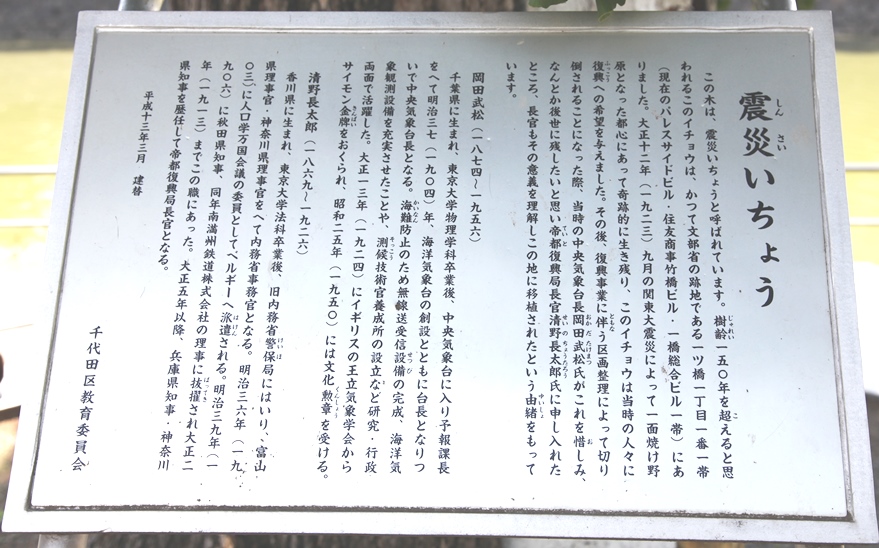 震災いちょう
しんさい
この木は、震災いちょうと呼ばれています。樹齢一五〇年を超えると思
われるこのイチョウは、かつて文部省の跡地である一ツ橋一丁目一番一帯
(現在のパレスサイドビル・住友商事竹橋ビル・一橋総合ビル一帯)にあ
りました。大正十二年(一九二三)九月の関東大震災によって一面焼け野
原となった都心にあって奇跡的に生き残り、このイチョウは当時の人々に
復興への希望を与えました。その後、復興事業に伴う区画整理によって切り
倒されることになった際、当時の中央気象台長岡田武松氏がこれを惜しみ、
なんとか後世に残したいと思い帝都復興局長官清野長太郎氏に申し入れた
ところ、長官もその意義を理解しこの地に移植されたという由緒をもって
います。
岡田武松(一八七四~一九五六)
千葉県に生まれ、東京大学物理学科卒業後、中央気象台に入り予報課長
をへて明治三七(一九〇四)年、海洋気象台の創設とともに台長となりつ
いで中央気象台長となる。海難防止のため無線送受信設備の完成、海洋気
象観測設備を充実させたことや、測候技術官養成所の設立など研究・行政
両面で活躍した。大正一三年(一九二四)にイギリスの王立気象学会から
サイモン金牌をおくられ、昭和二五年(一九五〇)には文化勲章を受ける。
清野長太郎(一八六九~一九二六)
香川県に生まれ、東京大学法科卒業後、旧内務省警保局にはいり、富山
県理事官・神奈川県理事官をへて内務省事務官となる。明治三六年(一九
〇三)に人口学万国会議の委員としてベルギーへ派遣される。明治三九年(一
九〇六)に秋田県知事、同年南満州鉄道株式会社の理事に抜擢され大正二
年(一九一三)までこの職にあった。大正五年以降、兵庫県知事・神奈川
県知事を歴任して帝都復興局長官となる。
平成十三年三月 建替
千代田区教育委員会